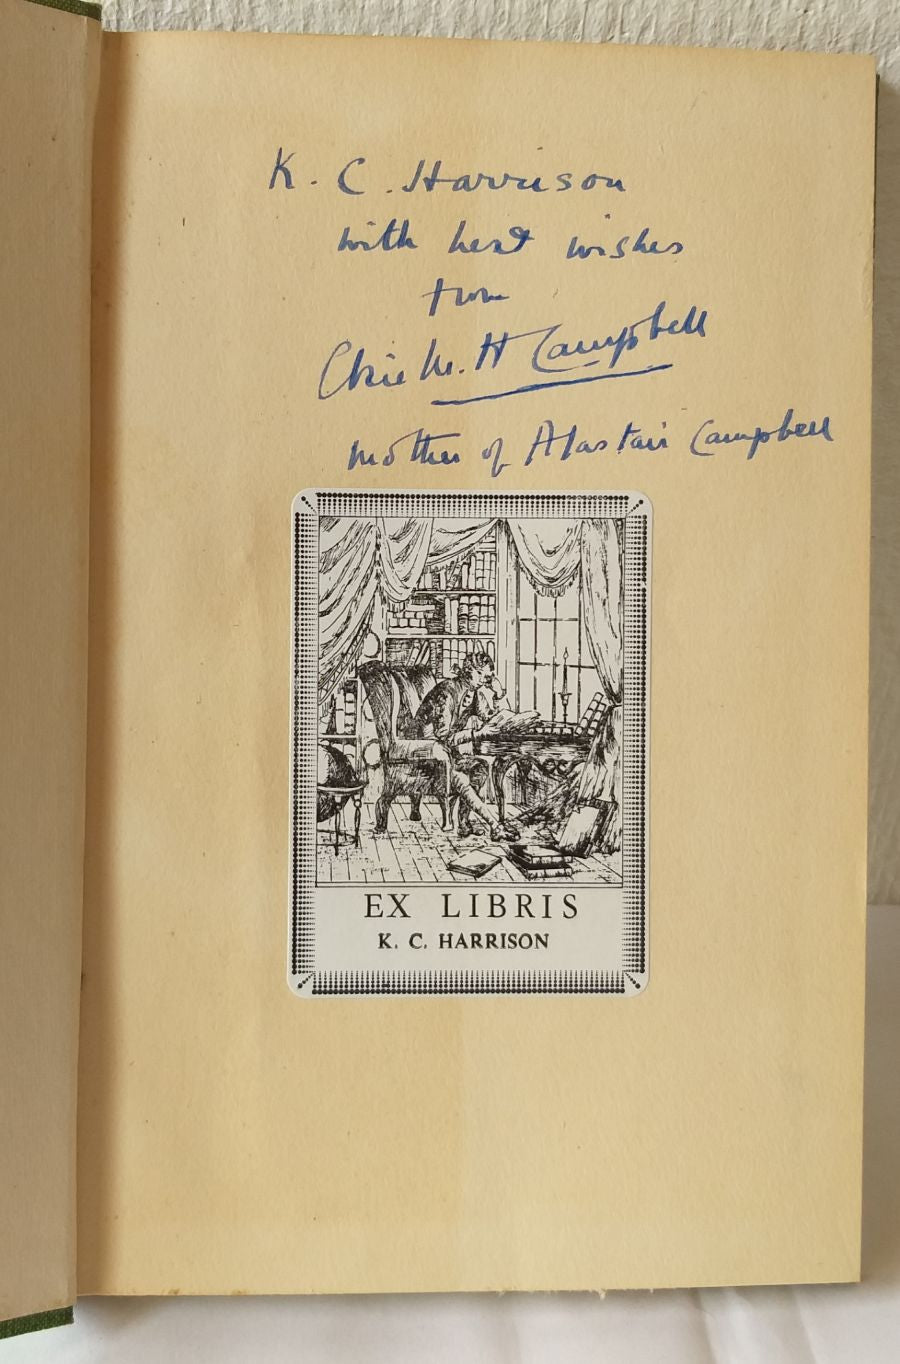 K. C. Harrison
with best wishes
from
Elsie M. H Campbell
Mother of Alastair Campbell
EX LIBRIS
K. C. HARRISON